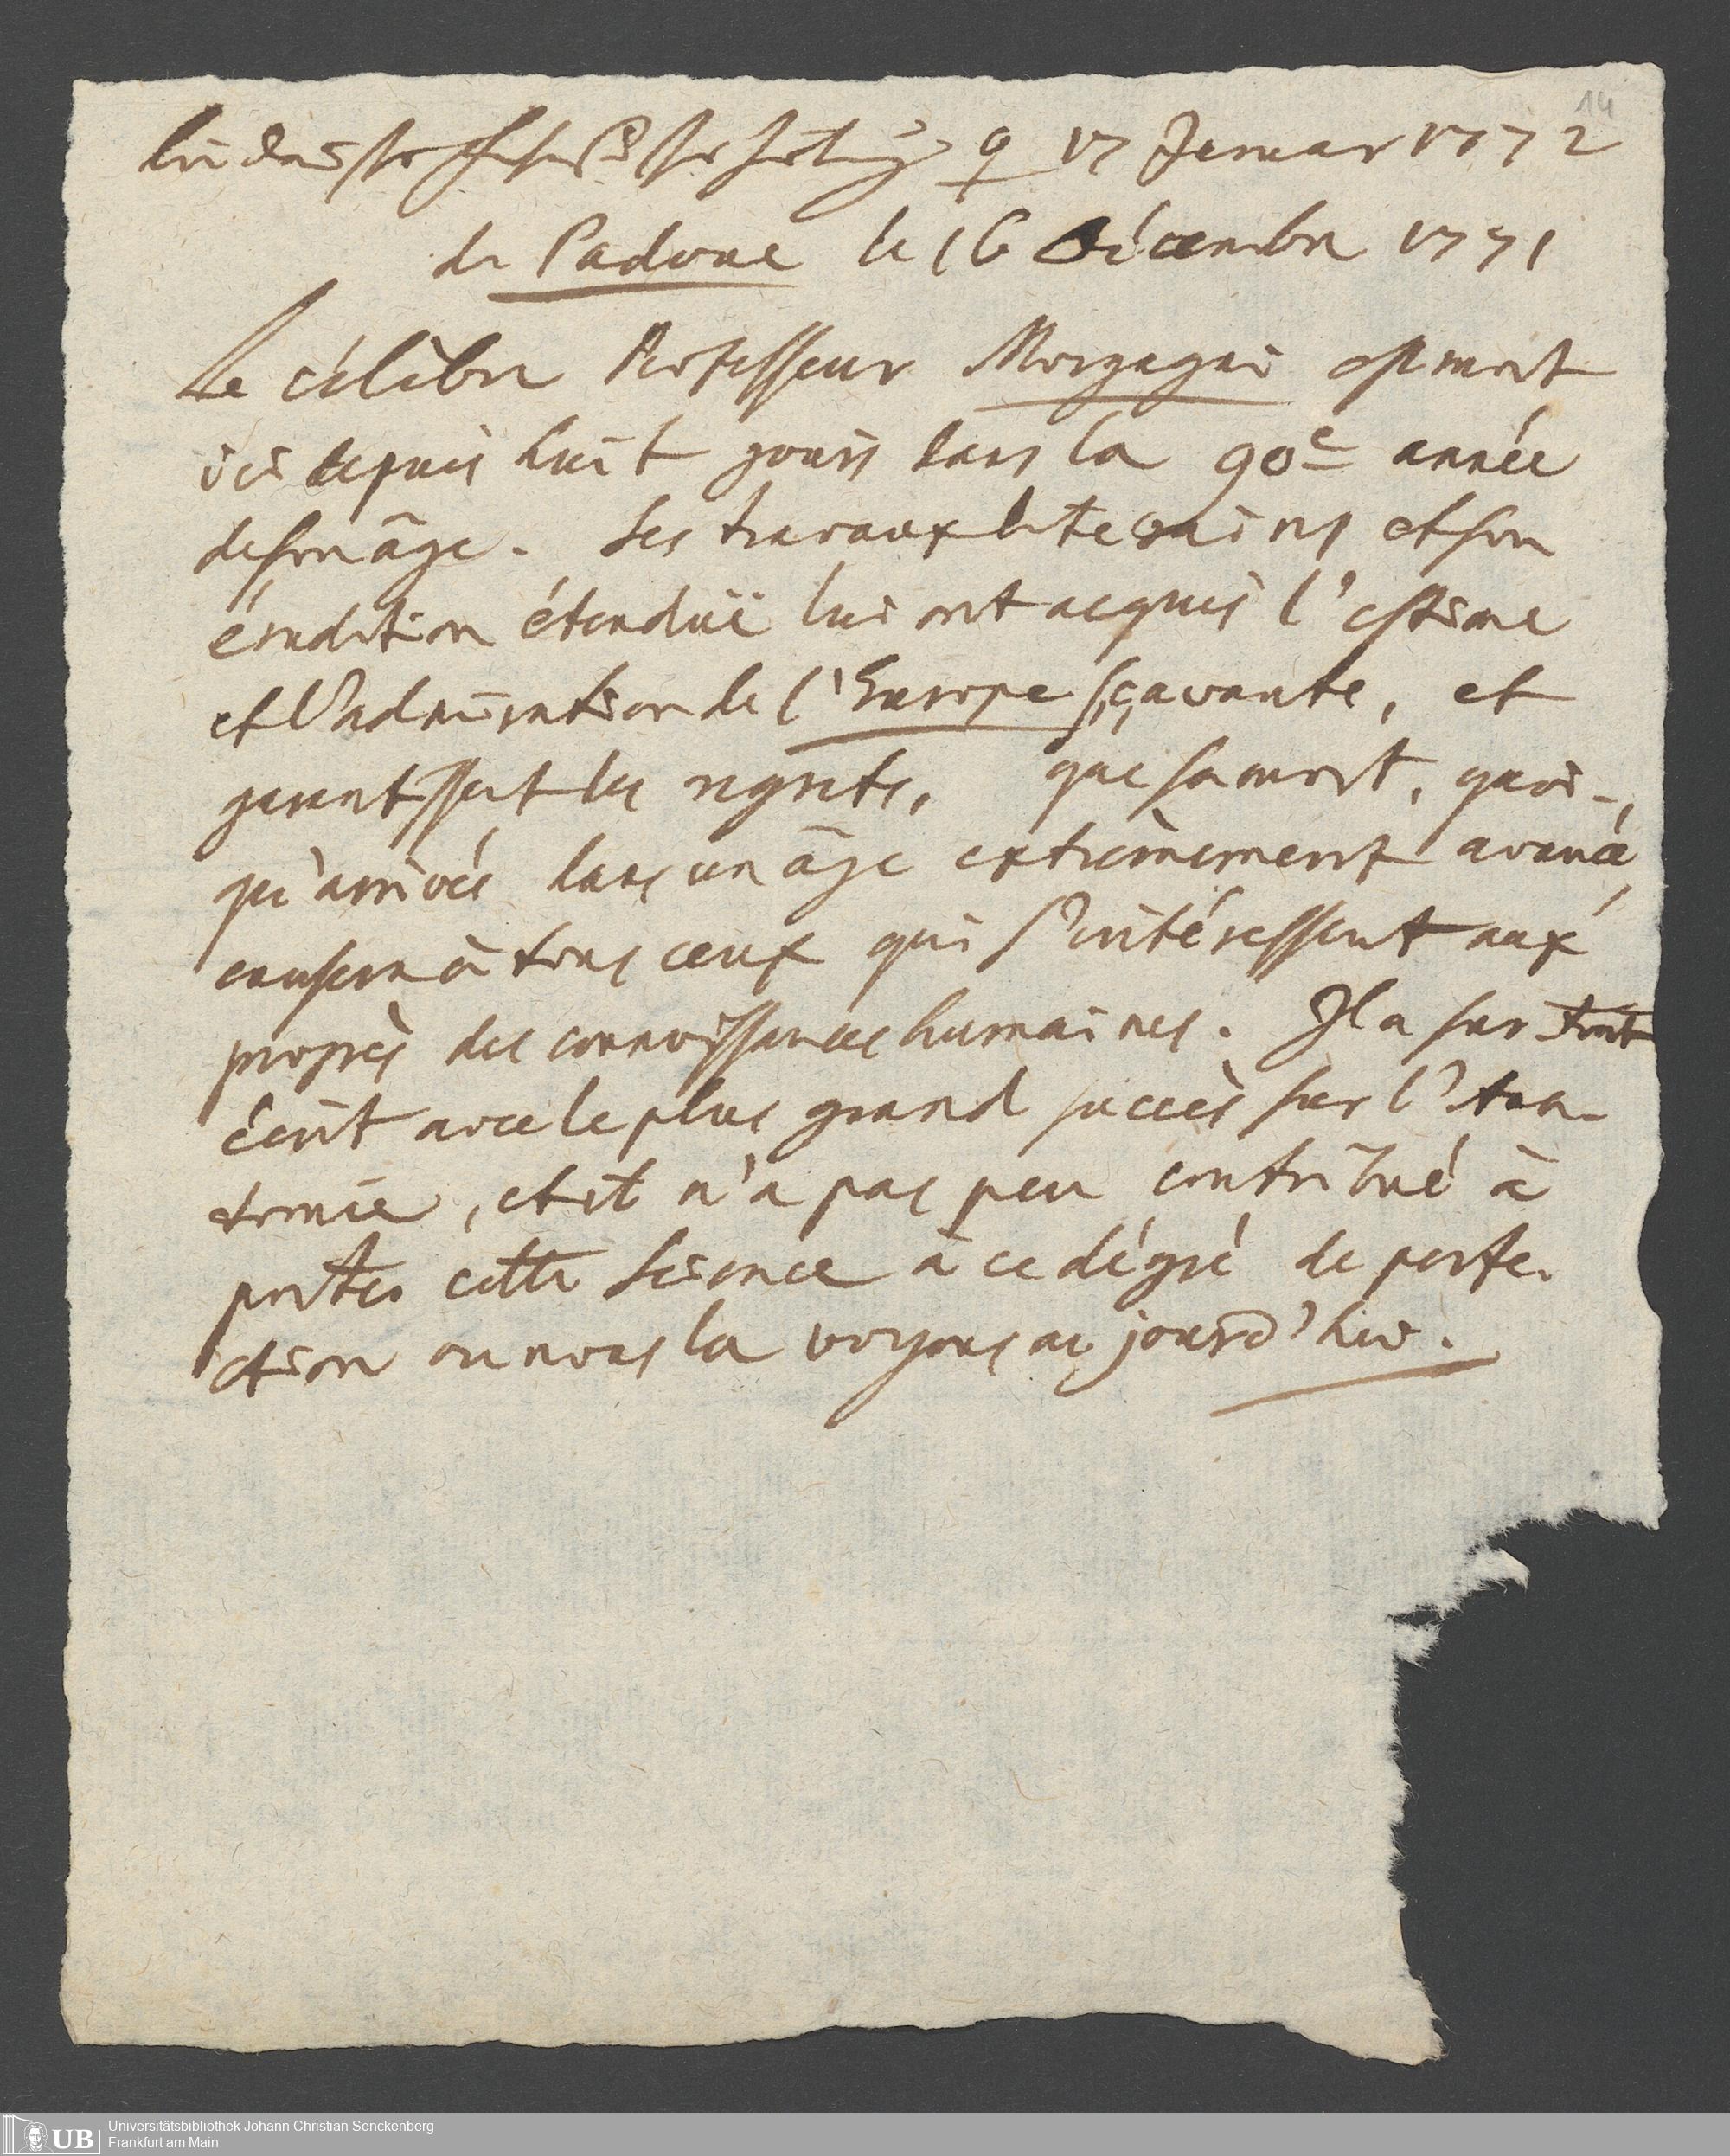 14
♀ 17 Januar 1772
de Padoue le 16 Décembre 1771
Le célèbre Professeur Morgagni est mort
ici depuis huit jours dans la 90e année
de son âge. Ses travaux litteraires et son
érudition étenduë lui ont acquis l'estime
et l'admiration de l'Europe sçavante, et
garantissent les regrets, que sa mort, quoi-
qu'arrivée dans un âge extrèmement avancé,
causera à tous ceux qui s'intéressent aux
progrès des connoissances humaines. Il a sur tout
écrit avec le plus grand succès sur l'Ana-
tomie, et il n'a pas peu contribué à
porter cette Science à ce dégré de perfe-
ction ou nous la voyons aujourd'hui.
UB Universitätsbibliothek Johann Christian Senckenberg
Frankfurt am Main